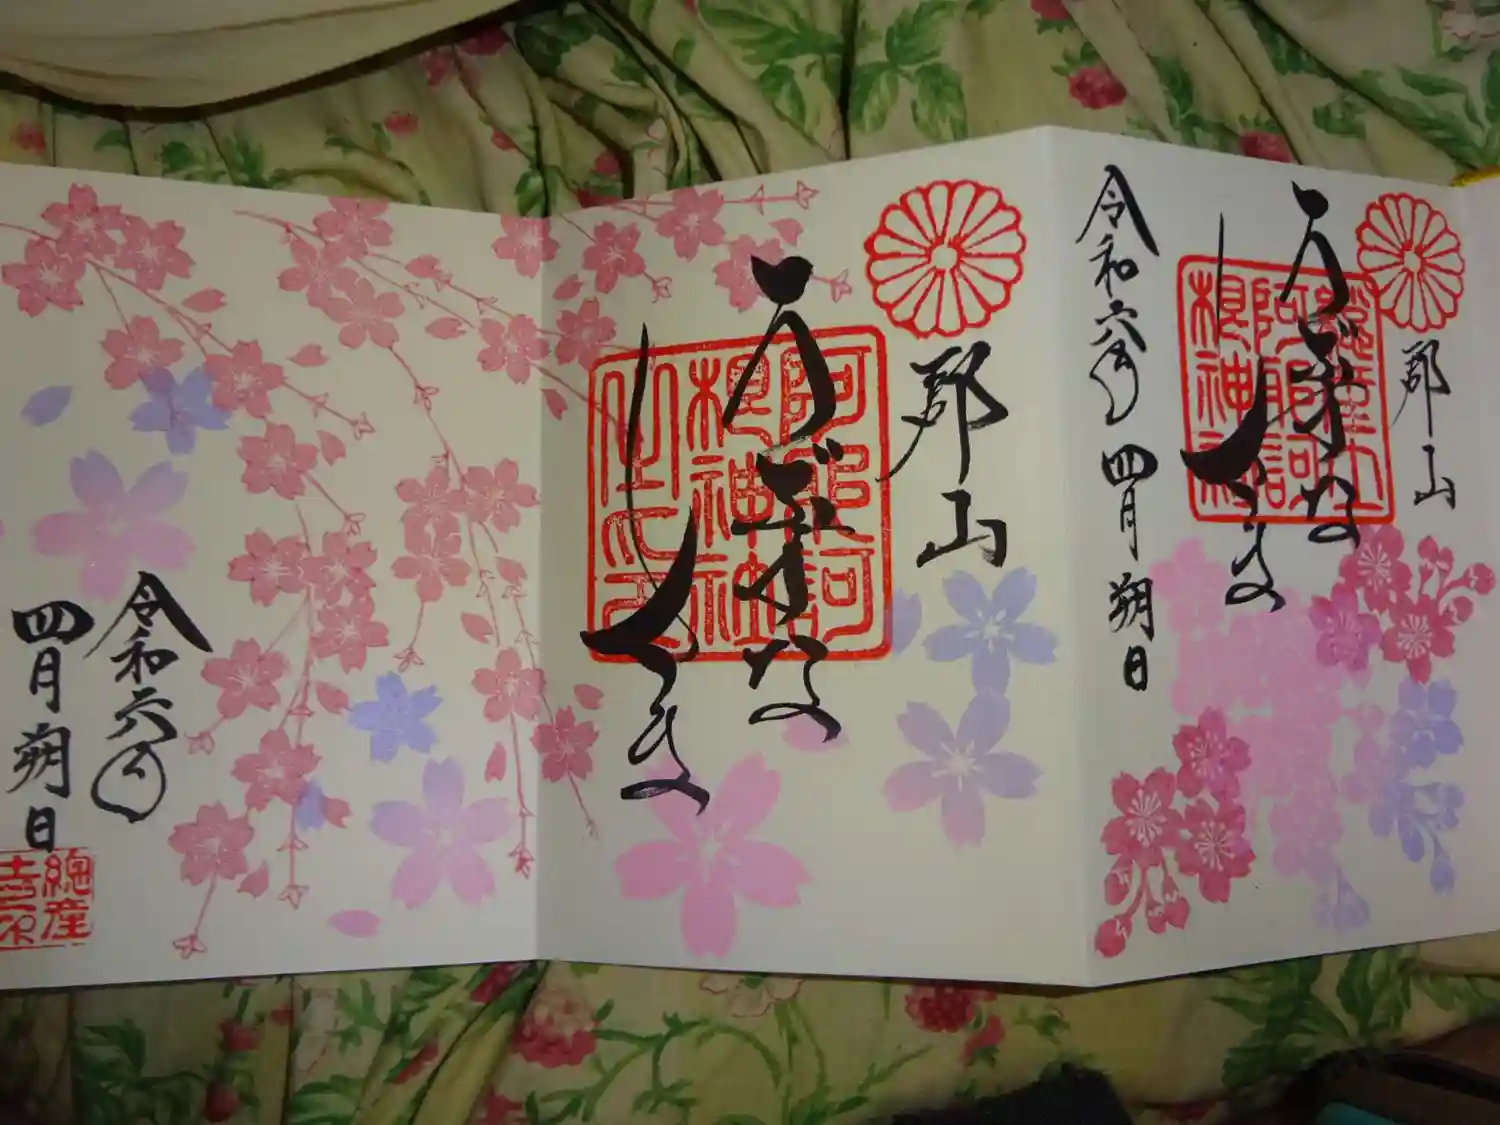 郡山
うぶすな
總産土
阿邪訶
根神社
令和六年
四月朔日
郡山
うぶすな
阿邪訶
根神社
令和六年
四月朔日
總産